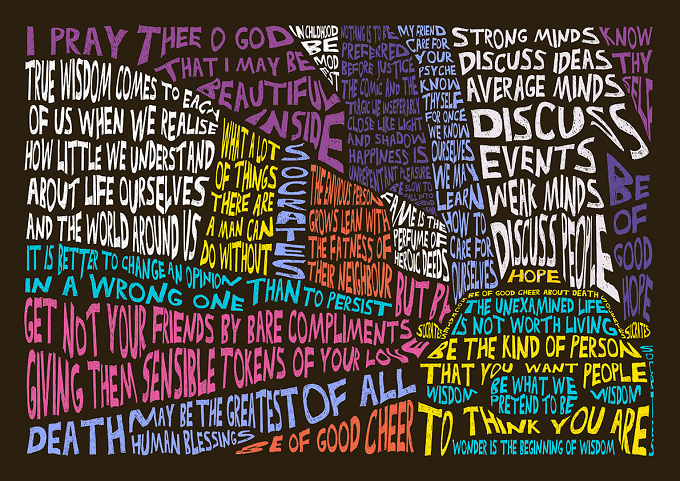 I PRAY THEE O GOD
THAT I MAY BE
BEAUTIFUL
INSIDE
IN CHILDHOOD
BE
MOD
EST
NOTHING IS TO BE
PREFERRED
BEFORE JUSTICE
THE COMIC AND THE
TRAGIC LIE INSEPERABLY
CLOSE LIKE LIGHT
AND SHADOW
HAPPINESS IS
UNREPENTANT PLEASURE
BE SLOW TO
FALL INTO
MY FRIEND
CARE FOR
YOUR
PSYCHE
KNOW
THYSELF
FOR ONCE
WE KNOW
OURSELVES
WE MAY
LEARN
HOW TO
CARE FOR
OURSELVES
STRONG MINDS
DISCUSS IDEAS
AVERAGE MINDS
DISCUSS
EVENTS
WEAK MINDS
DISCUSS PEOPLE
KNOW
THY
SELF
BE
OF
GOOD
HOPE
TRUE WISDOM COMES TO EACH
OF US WHEN WE REALISE
HOW LITTLE WE UNDERSTAND
ABOUT LIFE OURSELVES
AND THE WORLD AROUND US
WHAT A LOT
OF THINGS
THERE ARE
A MAN CAN
DO WITHOUT
SOCRATES
THE ENVIOUS PERSON
GROWS LEAN WITH
THE FATNESS OF
THEIR NEIGHBOUR
FAME IS THE
PERFUME OF
HEROIC DEEDS
IT IS BETTER TO CHANGE AN OPINION
IN A WRONG ONE
THAN TO PERSIST
GET NOT YOUR FRIENDS BY BARE COMPLIMENTS
BUT BY
GIVING THEM SENSIBLE TOKENS OF YOUR LOVE
DEATH MAY BE THE GREATEST OF ALL
HUMAN BLESSINGS
BE OF GOOD CHEER
HOPE
BE OF GOOD CHEER ABOUT DEATH
SOCRATES
THE UNEXAMINED LIFE
IS NOT WORTH LIVING
SOCRATES
BE THE KIND OF PERSON
THAT YOU WANT PEOPLE
WISDOM
BE WHAT WE
PRETEND TO BE
WISDOM
TO THINK YOU ARE
WONDER IS THE BEGINNING OF WISDOM